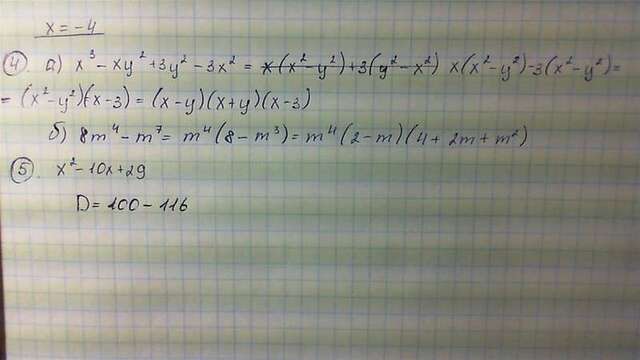 x = -4
④ а) x³ - xy² + 3y² - 3x² = x(x² - y²) + 3(y² - x²) x(x² - y²) - 3(x² - y²) =
= (x² - y²)(x - 3) = (x - y)(x + y)(x - 3)
б) 8m⁴ - m⁷ = m⁴(8 - m³) = m⁴(2 - m)(4 + 2m + m²)
⑤. x² - 10x + 29
D = 100 - 116